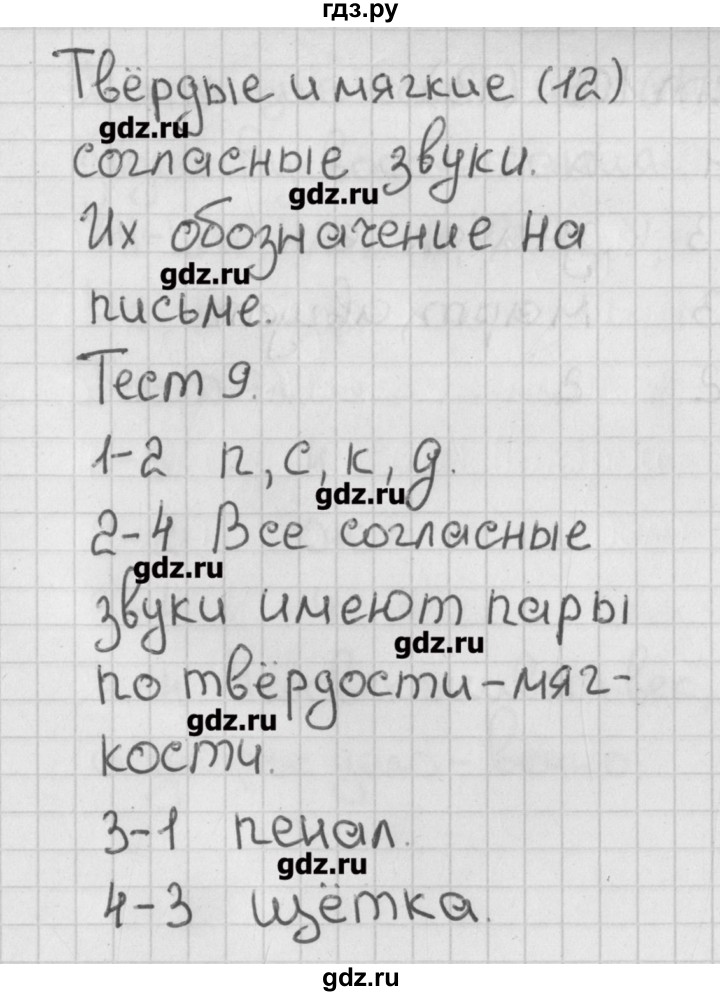 гдз.ру
Твёрдые и мягкие (12)
gdz.ru
согласные звуки.
gdz.ru
Их обозначение на
gdz.ru
письме.
Тест 9.
1-2 п, с, к, д.
gdz.ru
2-4 Все согласные
gdz.ru
звуки имеют пары
gdz.ru
по твёрдости-мяг-
gdz.ru
кости.
3-1 пенал.
gdz.ru
4-3 щётка.
gdz.ru